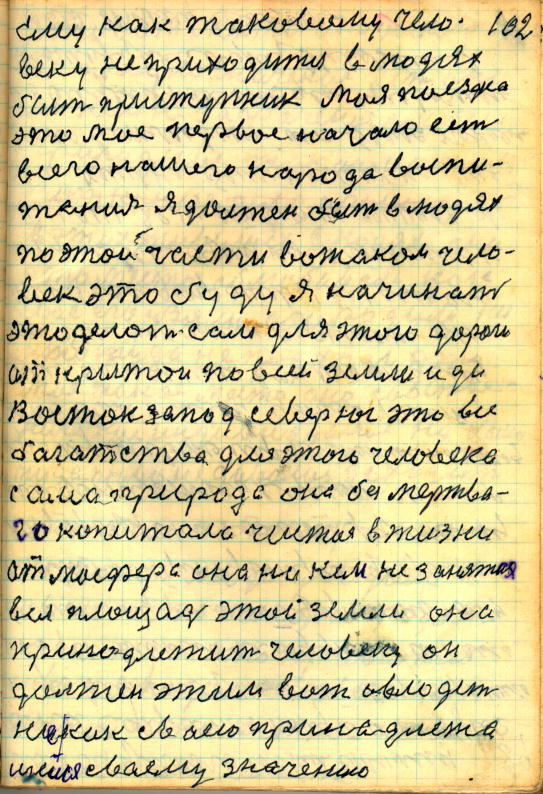 Ему как таковому чело- 102
веку неприходится в людях
быт приступник Моя поездка
это мое первое начало ест
всего нашего народа воспи-
тания Я должен быт в людях
по этой части вожаком чело-
век это буду я начинат
это делот сам для этого дороги
открытои по всей земли иди
Восток запод север юг это все
багатства для этого человека
сама природа она бз мертва-
го копитала чистая в жизни
атмосфера она ни кем не занятая
вся площад этой земли она
принадлежит человеку он
должен этим вот овлодет
не как своею принадлежа
щейся своему значению